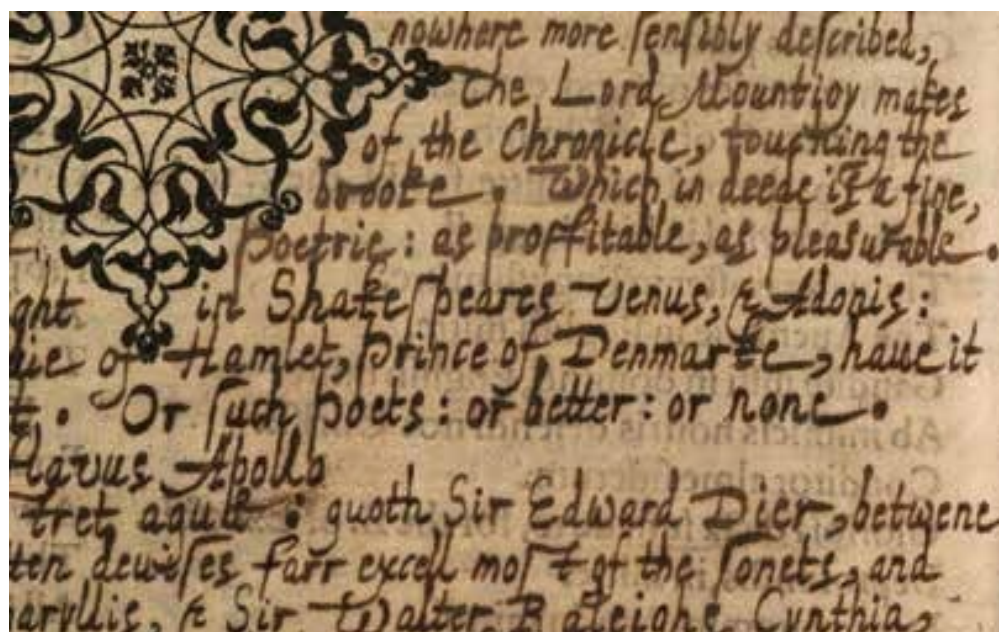 nowhere more ſenſibly deſcribed,
the Lord Mountioy makes
of the Chronicle, touching the
brooke. Which in deede is a fine,
poetrie: as proffitable, as pleasurable.
ght in Shakeſpeares Venus, & Adonis:
die of Hamlet, Prince of Denmarke, haue it
t. Or ſuch poets: or better: or none.
flavus Apollo
tret aqua: quoth Sir Edward Dier, betwene
ten deviſes farr excell moſt of the ſonets, and
aryllis, & Sir Walter Raleighs Cynthia,